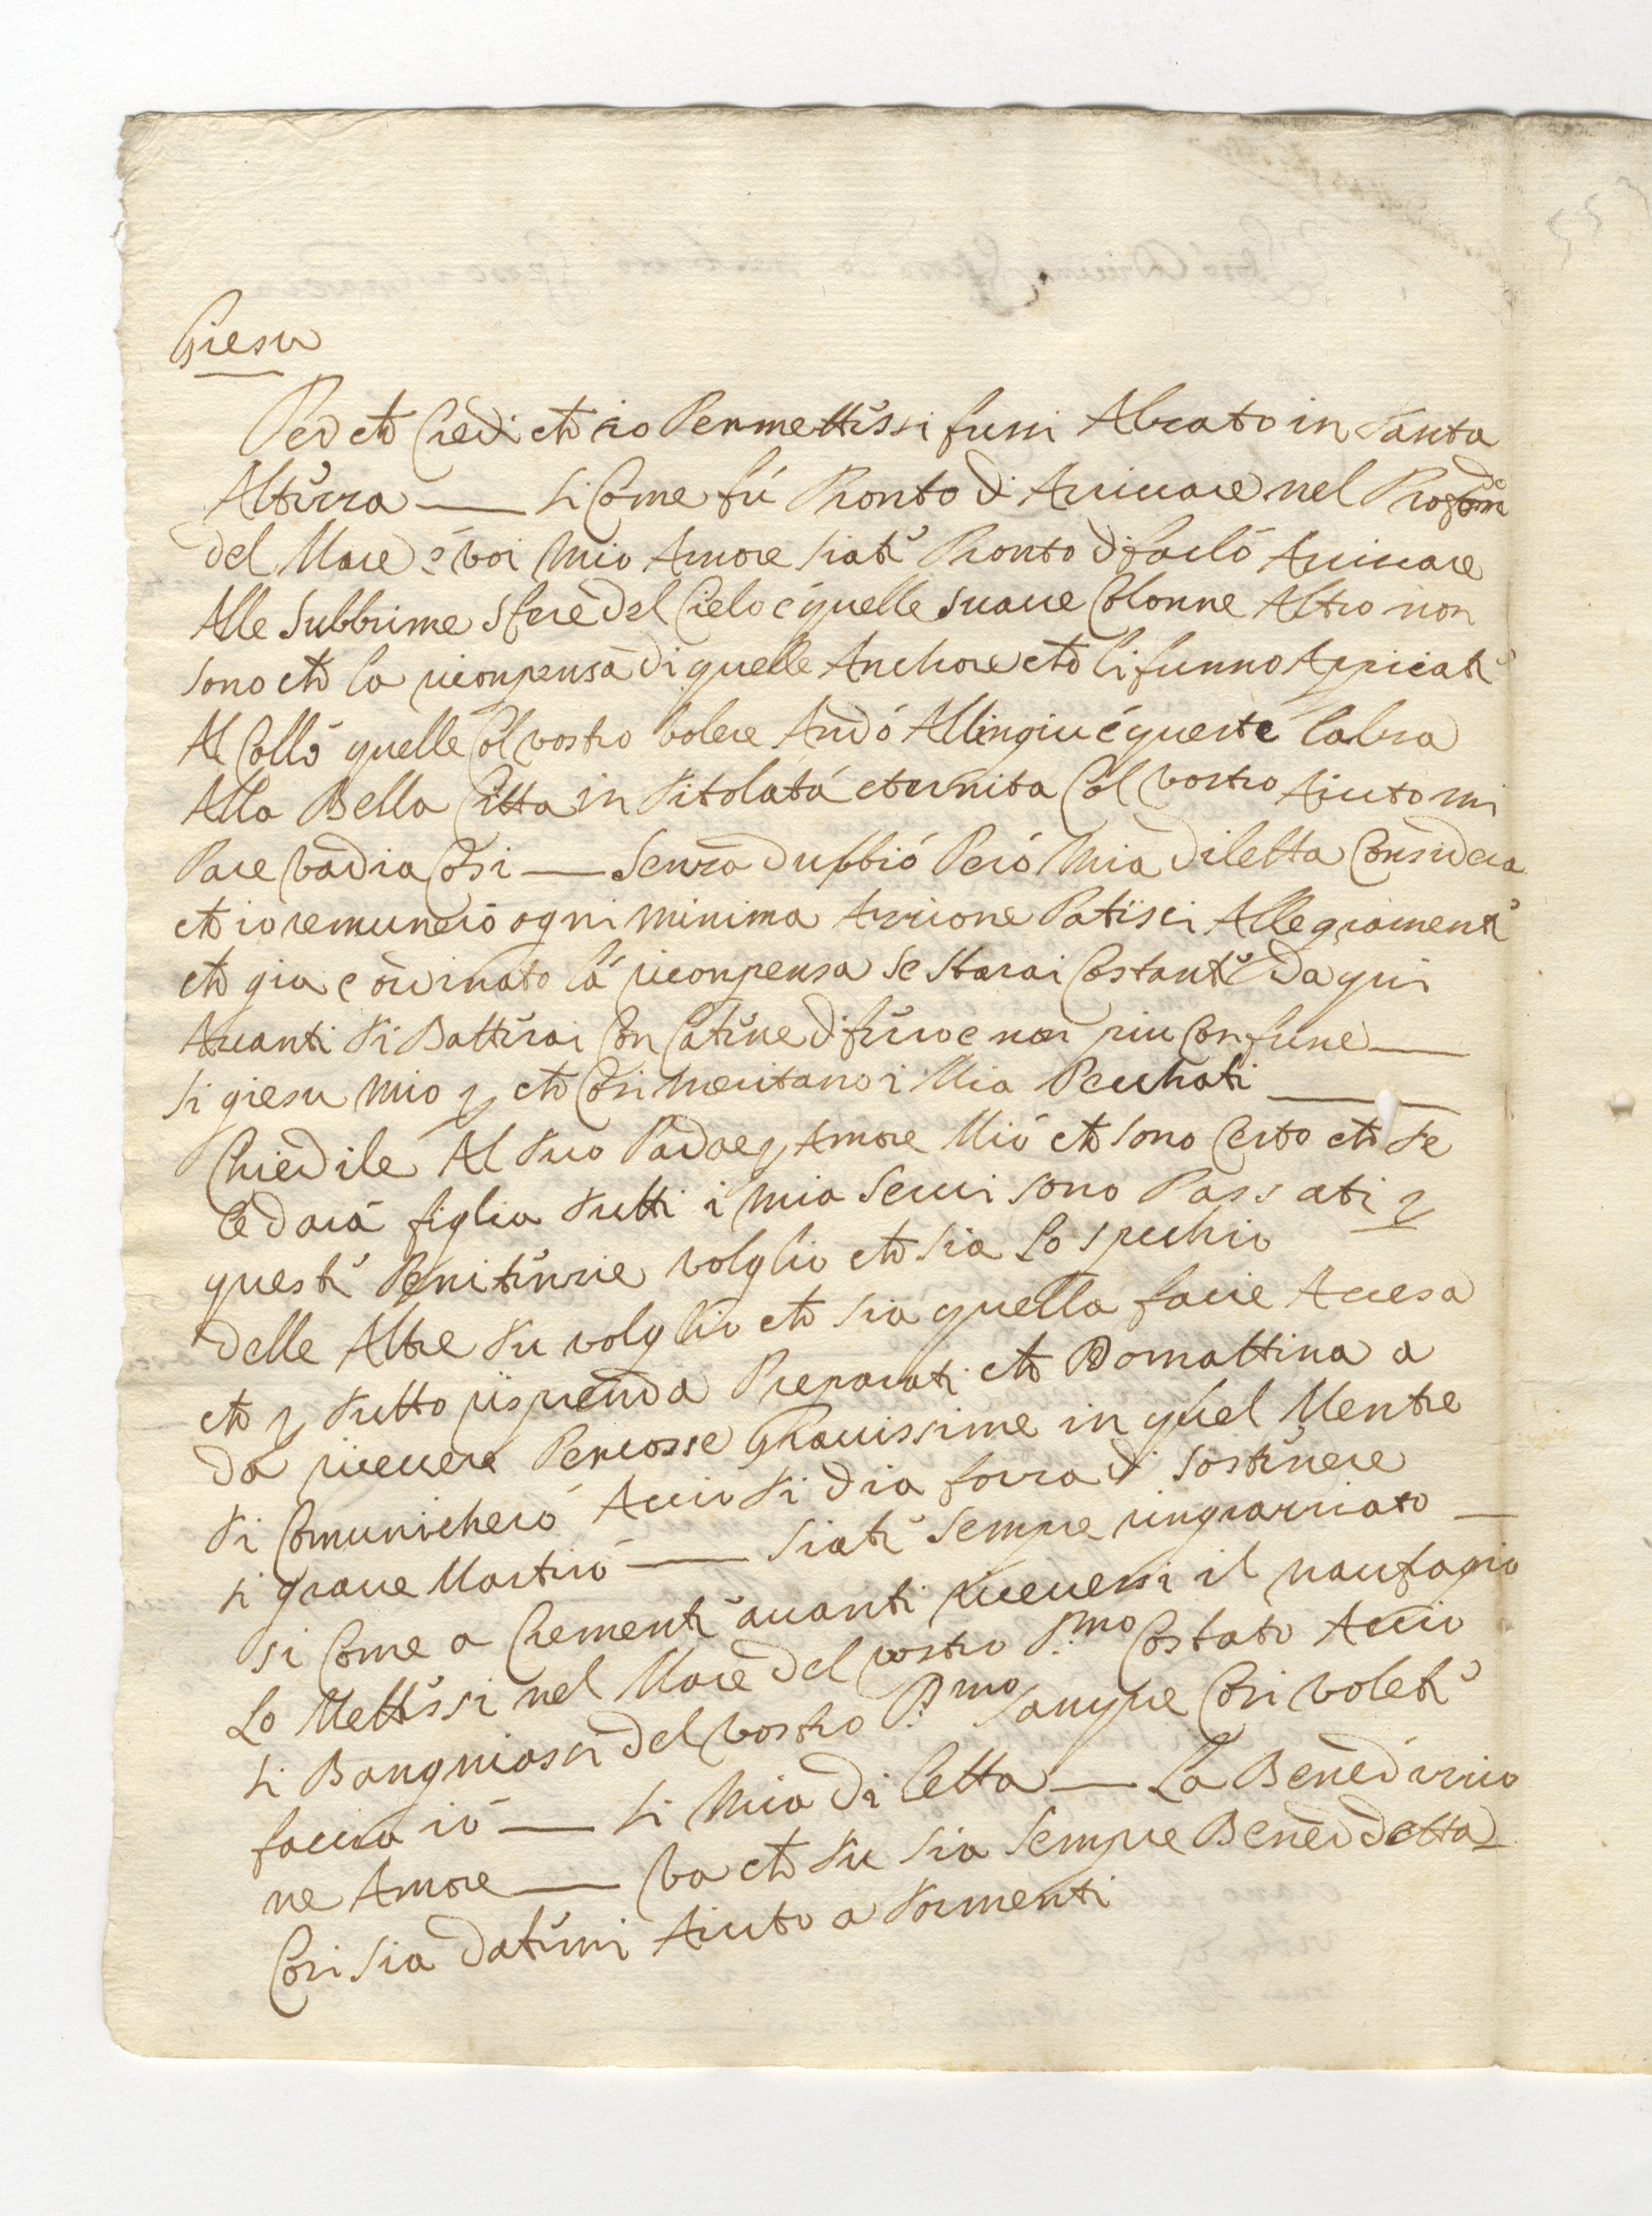 Giesu
Per che Credi che io Permettessi fussi Alzato in tanta
Alturra — si Come fú Pronto di Arriuare nel Profondo
del Mare é voi Mio Amore siate Pronto di farló Arriuare
Alle Subbrime Sfere del Cielo e quelle suaue Colonne Altro non
sono che la riconpensa di quelle Anchore che li funno Appicate
Al Colló quelle Col vostro volere Andó Allingiu é queste lalza
Alla Bella Citta in titolatá eternita Col vostro Aiuto mi
Pare vadia Cosi — Senza dubbió Peró Mia diletta Considera
che io remuneró ogni minima Azzione Patisci Allegramente
che gia e ordinato lá riconpensa se starai Costante da qui
Auanti ti Batterai Con Catene di ferro e non piu Con fune —
si giesu mio p che Cosi meritano i Mia Pecchati —
Chiedile Al tuo Padre p Amore Mió che sono Certo che te
le dará figlia tutti i mia Serui sono Passati p
queste Penitenzie volglio che sia Lo specchio
delle Altre tu volglio che sia quella facie Accesa
che p tutto risprenda Preparati che Domattina a
da riceuere Percosse Grauissime in quel Mentre
ti Comunicheró Accio ti dia forza di sostenere
si graue Martiró — siate sempre ringrazziato —
si Come a Clemente auanti riceuessi il naufragio
Lo Mettessi nel Mare del vostro S.mo Costato Accio
si Bangniassi del vostro P.mo Sangue Cosi volete
faccia ió — si Mia diletta — La Benedizzio
ne Amore — va che tu sia Sempre Beneddetta
Cosi sia datemi Aiuto a tormenti